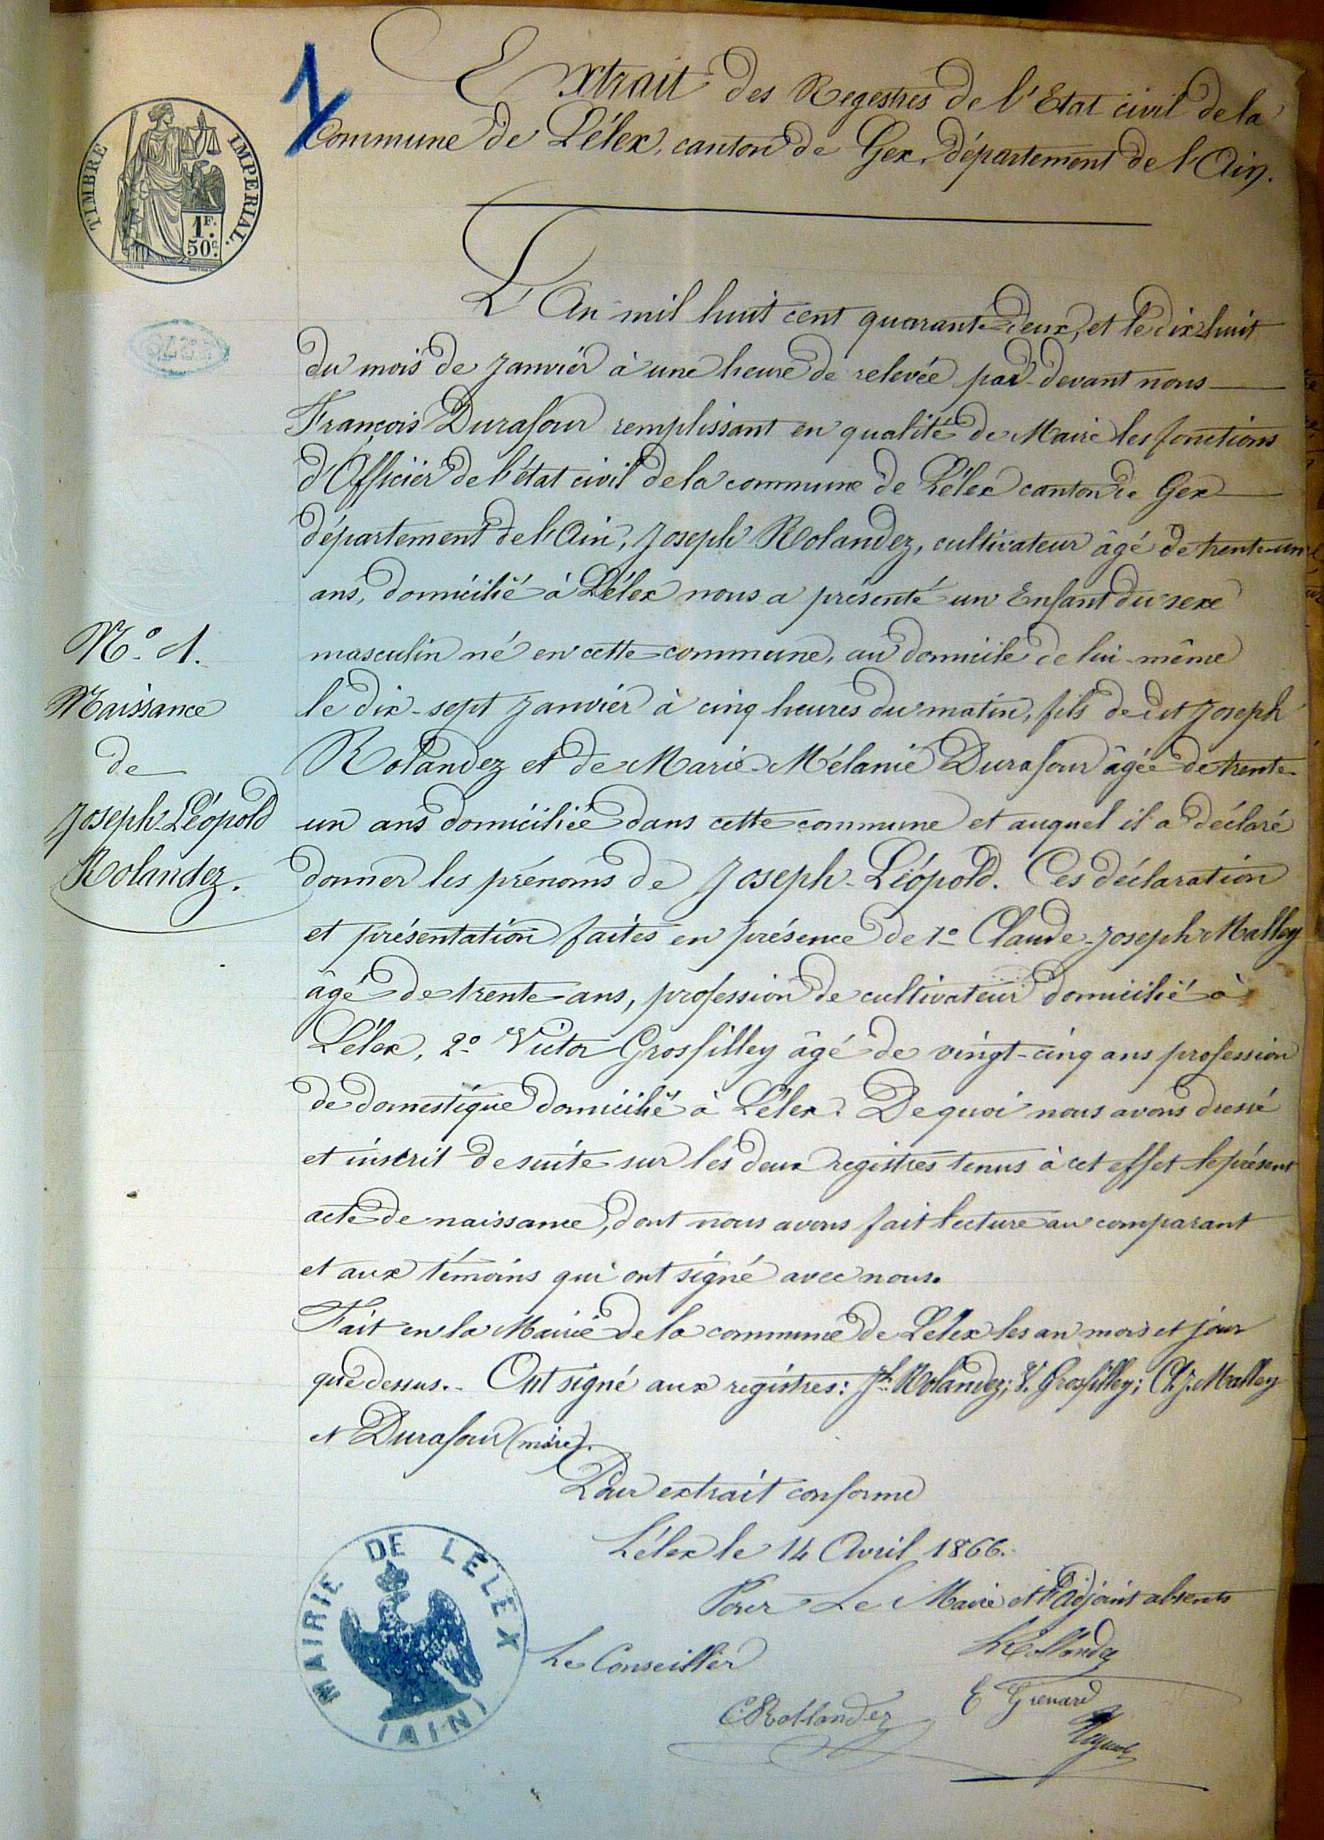 TIMBRE IMPERIAL.
1F.
50c.
1
Extrait des Regestres de l'Etat civil de la
Commune de Lélex, canton de Gex, département de l'Ain.
L'An mil huit cent quarante-deux, et le dix huit
du mois de Janvier à une heure de relevée par-devant nous
François Durafour remplissant en qualité de Maire les fonctions
d'Officier de l'état civil de la commune de Lélex canton de Gex
département de l'Ain, Joseph Rolandez, cultivateur âgé de trente-un
ans, domicilié à Lélex nous a présenté un Enfant du sexe
masculin né en cette commune, au domicile de lui-même
le dix-sept Janvier à cinq heures du matin, fils de dit Joseph
Rolandez et de Marie-Mélanie Durafour âgée de trente-
un ans domiciliée dans cette commune et auquel il a déclaré
donner les prénoms de Joseph-Léopold. Ces déclaration
et présentation faites en présence de 1º Claude-Joseph Malley
âgé de trente ans, profession de cultivateur domicilié à
Lélex, 2º Victor Grosfilley âgé de vingt-cinq ans profession
de domestique domicilié à Lélex. De quoi nous avons dressé
et inscrit de suite sur les deux registres tenus à cet effet le présent
acte de naissance, dont nous avons fait lecture au comparant
et aux témoins qui ont signé avec nous.
Fait en la Mairie de la commune de Lélex les an mois et jour
que dessus. Ont signé aux registres: Jh Rolandez; V. Grosfilley; Cl. J. Malley
et Durafour (maire).
Nº 1.
Naissance
de
Joseph-Léopold
Rolandez.
Pour extrait conforme
Lélex le 14 Avril 1866.
Pour Le Maire et l'adjoint absents
Le Conseiller
C Rollandez
E Grenard
MAIRIE DE LÉLEX
(AIN)